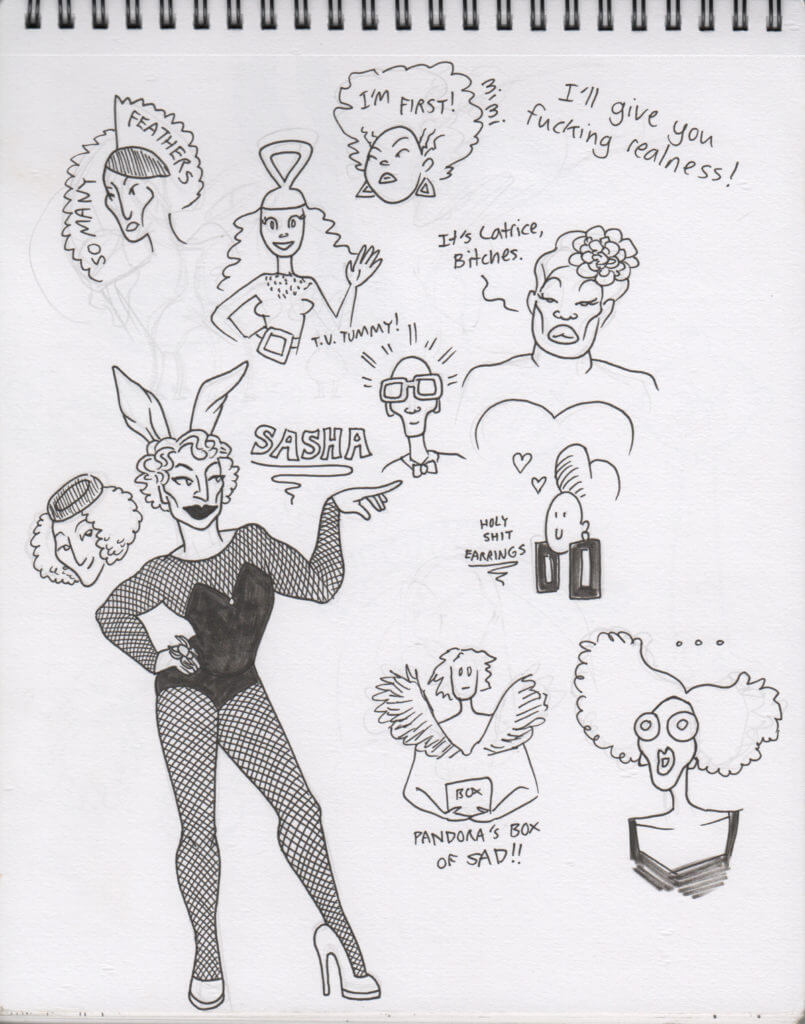 I'M FIRST!
I'll give you
fucking realness!
SO MANY
FEATHERS
It's Latrice,
Bitches.
T.V. TUMMY!
SASHA
HOLY
SHIT
EARRINGS
...
BOX
PANDORA'S BOX
OF SAD!!